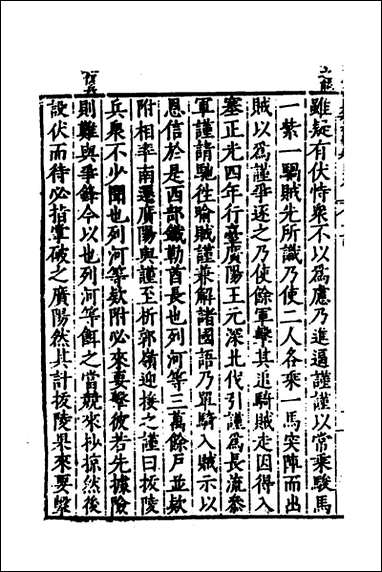 雖疑有伏恃衆不以爲慮乃進逼謹謹以常乘駿馬
一紫一騧賊先所識乃使二人各乘一馬突陣而出
賊以爲謹爭逐之乃使餘軍擊其追騎賊走因得入
塞正光四年行臺廣陽王元深北伐引謹爲長流參
軍謹請馳往喻賊謹兼解諸國語乃單騎入賊示以
恩信於是西部鐵勒酋長也列河等三萬餘戶並欵
附相率南遷廣陽與謹至折郭嶺迎接之謹曰拔陵
兵衆不少聞也列河等欵附必來要擊彼若先據險
則難與爭鋒今以也列河等餌之當競來抄掠然後
設伏而待必指掌破之廣陽然其計拔陵果來要擊